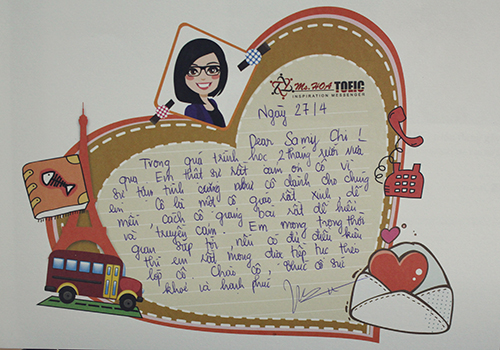 Ms. HOA TOEIC
INSPIRATION MESSENGER
Ngày 27/4
Dear Samy Chi!
Trong quá trình học 2 tháng rưỡi vừa
qua Em thật sự rất cảm ơn cô vì
sự tâm trình cũng như cô dành cho chúng
em Cô là một cô giáo rất xinh dễ
mến, cách cô giảng bài rất dễ hiểu
và truyền cảm. Em mong trong thời
gian sắp tới, nếu có đủ điều kiện
thì em rất mong được tiếp tục theo
lớp cô Chào cô, chúc cô sức
khoẻ và hạnh phúc